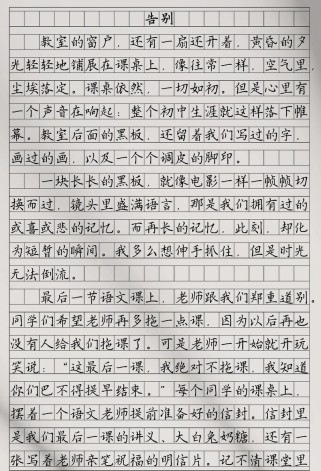 告别
教室的窗户，还有一扇还开着，黄昏的夕
光轻轻地铺展在课桌上，像往常一样，空气里，
尘埃落定。课桌依然，一切如初。但是心里有
一个声音在响起：整个初中生涯就这样落下帷
幕。教室后面的黑板，还留着我们写过的字，
画过的画，以及一个个调皮的脚印。
一块长长的黑板，就像电影一样一帧帧切
换而过，镜头里盛满语言，那是我们拥有过的
或喜或悲的记忆。而再长的记忆，此刻，却化
为短暂的瞬间。我多么想伸手抓住，但是时光
无法倒流。
最后一节语文课上，老师跟我们郑重道别。
同学们希望老师再多拖一点课，因为以后再也
没有人给我们拖课了。可是老师一开始就开玩
笑说：“这最后一课，我绝对不拖课，我知道
你们巴不得提早结束。”每个同学的课桌上，
摆着一个语文老师提前准备好的信封。信封里
是我们最后一课的讲义、大白兔奶糖，还有一
张写着老师亲笔祝福的明信片。记不清课堂里